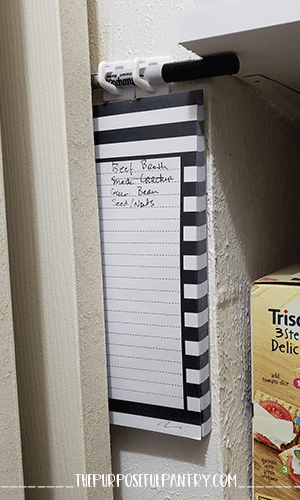 Beef Broth
Snack Crackers
Green Beans
Seed/Nuts
Trisc
3 Ste
Delic
add
tomato slice
THEPURPOSEFULPANTRY.COM